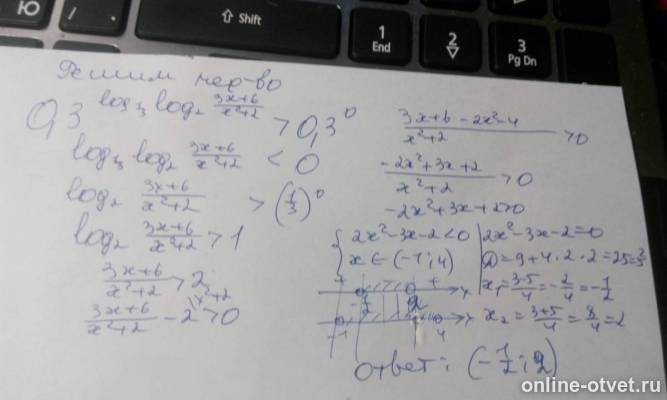 Ю / . Shift 1 End 2 3 Pg Dn
Решим нер-во
0,3^{log_{⅓} log₂ (3x+6)/(x²+2)} > 0,3⁰
log_{⅓} log₂ (3x+6)/(x²+2) < 0
log₂ (3x+6)/(x²+2) > (1/3)⁰
log₂ (3x+6)/(x²+2) > 1
(3x+6)/(x²+2) > 2
(3x+6)/(x²+2) - 2 \x²+2 > 0
(3x+6-2x²-4)/(x²+2) > 0
(-2x²+3x+2)/(x²+2) > 0
-2x²+3x+2>0
{ 2x²-3x-2<0
x ∈ (-1; 4)
2x²-3x-2=0
D=9+4·2·2=25=5²
x₁=(3-5)/4=-2/4=-1/2
x₂=(3+5)/4=8/4=2
+ - + -1/2 2 x
-1 4 x
Ответ: (-1/2; 2)
online-otvet.ru